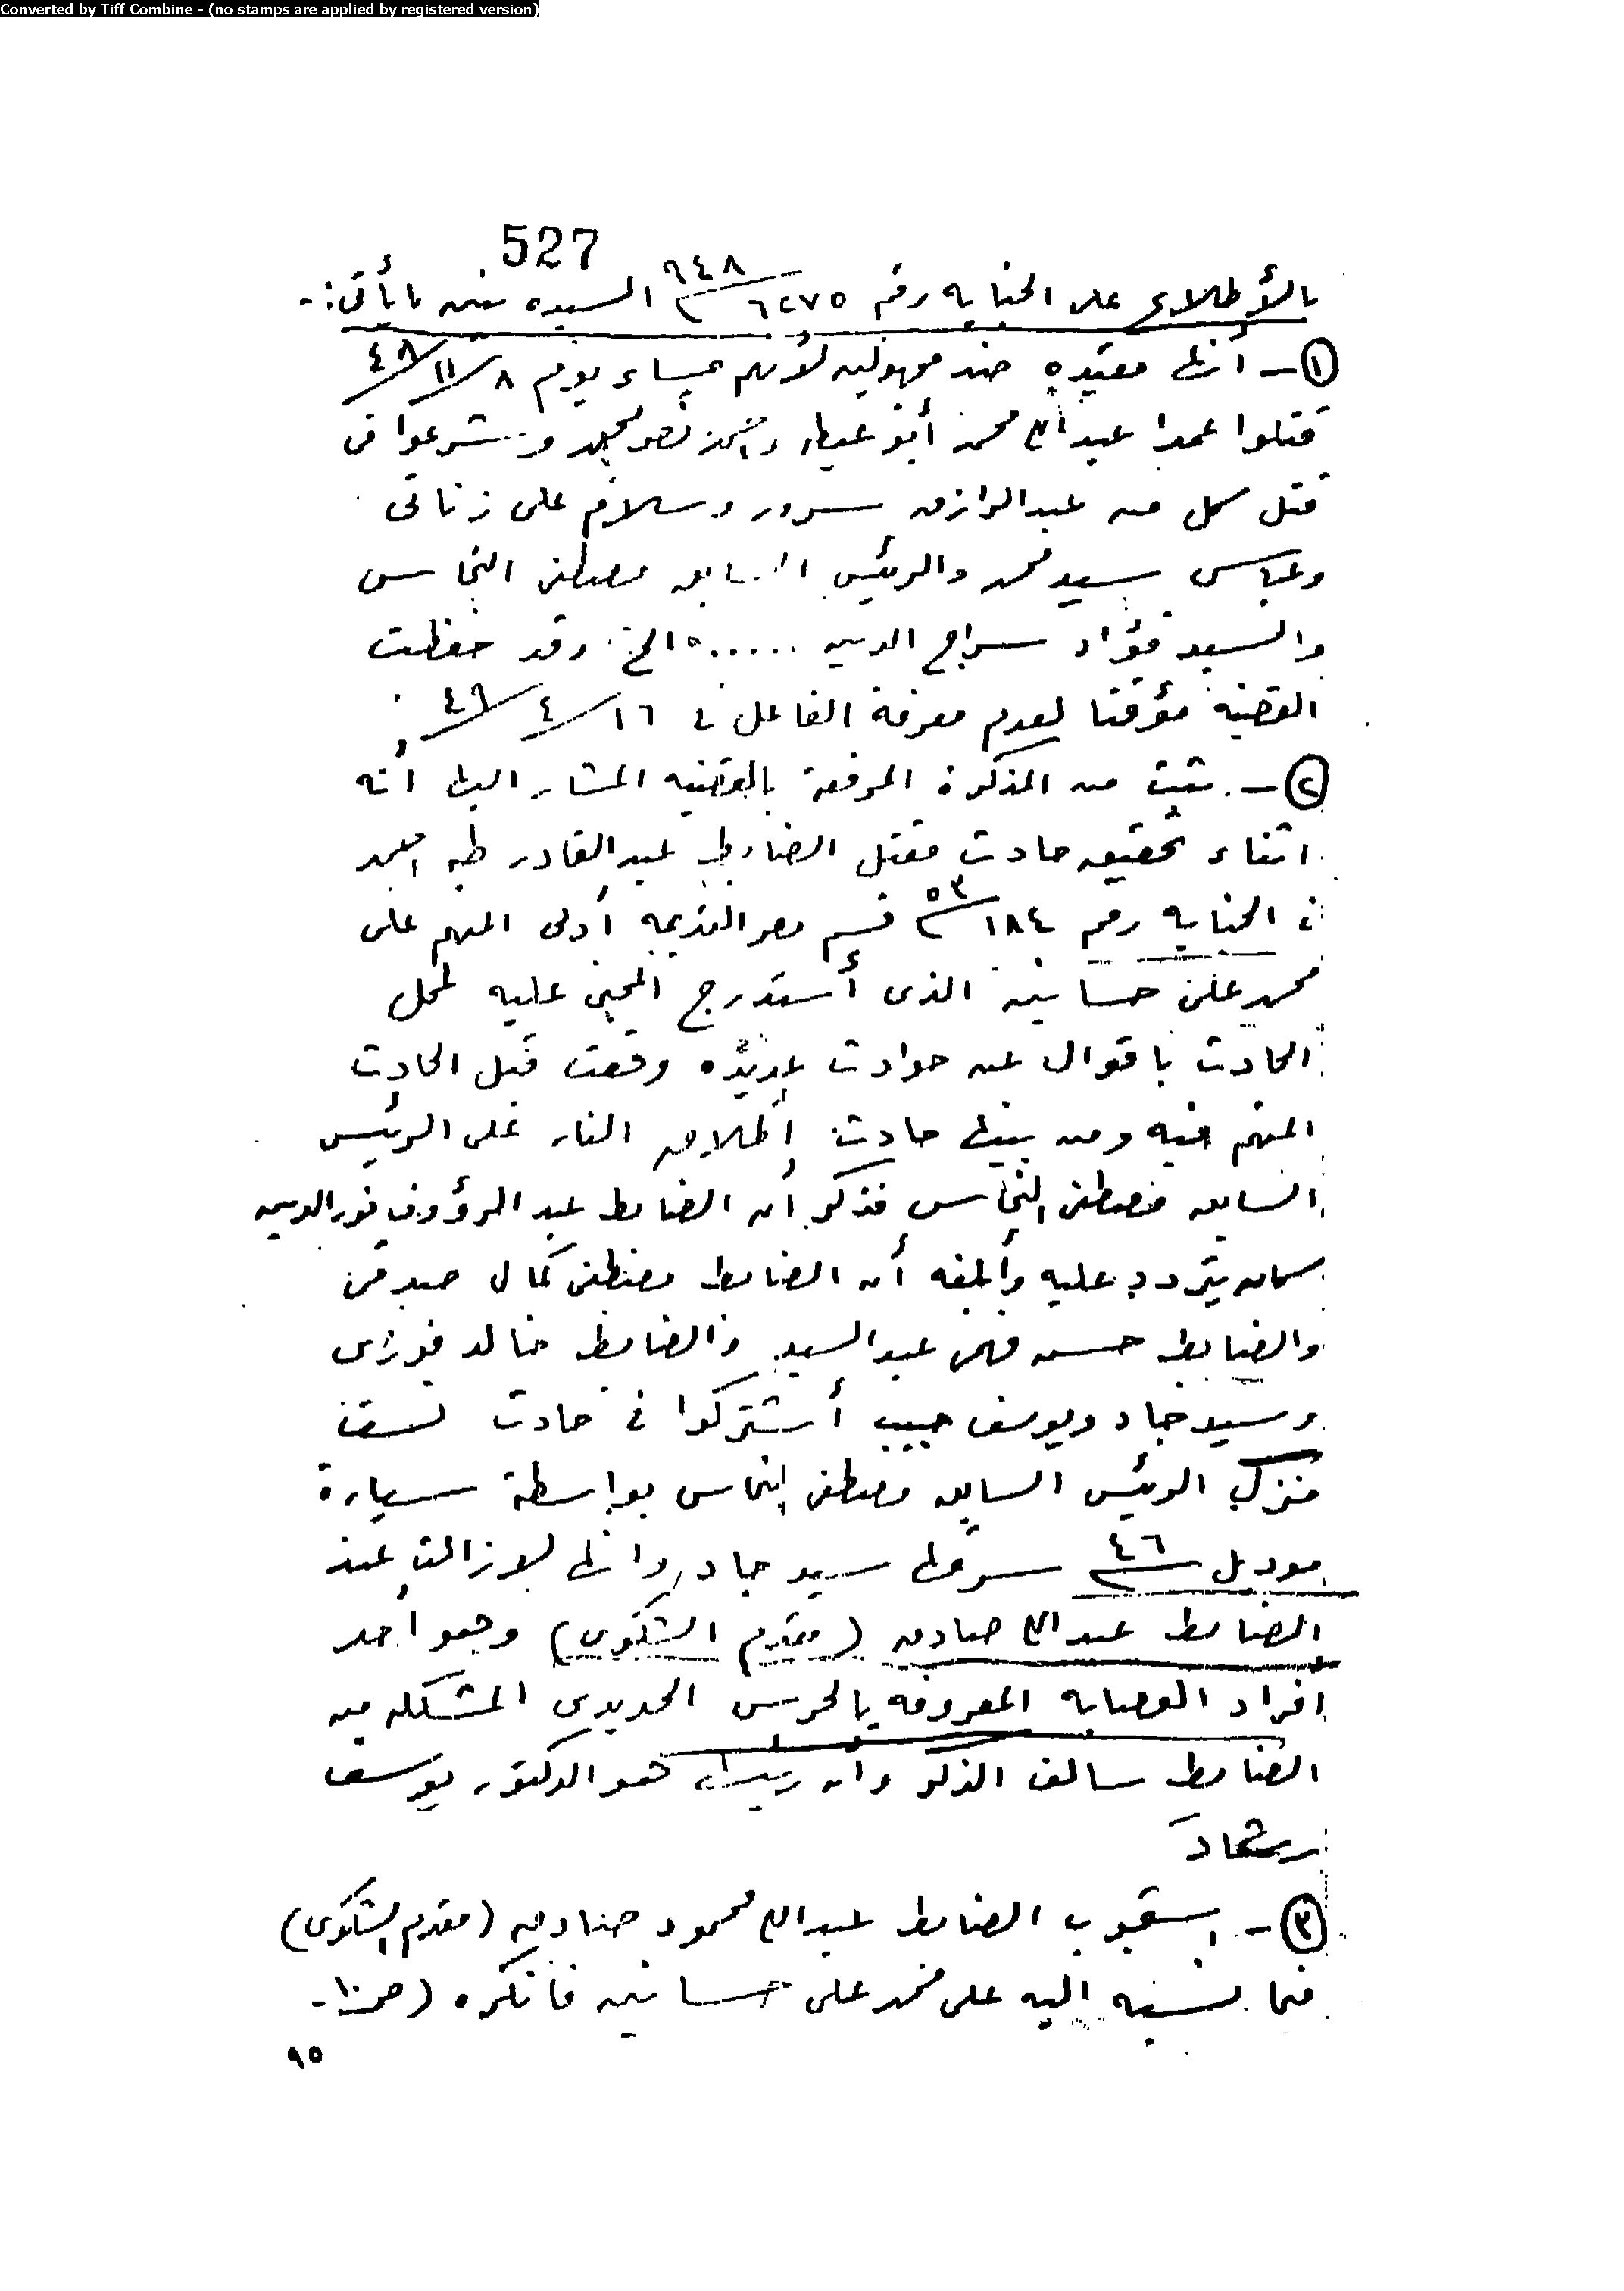 Converted by Tiff Combine - (no stamps are applied by registered version)
527
بالأطلاع على الجنايه رقم ٦٢٧٥ / ٩٤٨ السيده تبين ما يأتى :-
١ - أنها مقيده ضد مجهولين لأنهم مساء يوم ٨ / ١١ / ٤٨
قتلوا عمدا عبد الله محمد أبو عيطه واحمد نصر محمد وشرعوا فى
قتل كل من عبد الرازق سرور وسلام على زناتى
وعباس سيد محمد والرئيس السابق مصطفى النحاس
والسيد فؤاد سراج الدين ...... الخ . وقد حفظت
القضية مؤقتا لعدم معرفة الفاعل فى ١٦ / ٤ / ٤٩ .
٢ - ثبت من المذكرة المرفقة بالقضيه المشار اليها أنه
اثناء تحقيق حادث مقتل الضابط عبد القادر طه احمد
فى الجنايه رقم ١٨٤ / ٥٣ قسم مصر القديمه أدلى المتهم على
محمد على حسانين الذى أستدرج المجنى عليه لمحل
الحادث باقوال عن حوادث عديده وقعت قبل الحادث
المتهم فيه ومن بينها حادث إطلاق النار على الرئيس
السابق مصطفى النحاس فذكر أن الضابط عبد الرؤوف نور الدين
كان يتردد عليه وأبلغه أن الضابط مصطفى كمال صدقى
والضابط حسن فهمى عبد السيد والضابط خالد فوزى
وسيد جاد ويوسف حبيب أشتركوا فى حادث نسف
منزل الرئيس السابق مصطفى النحاس بواسطة سيارة
موديل ٤٦ سرقها سيد جاد وانها لازالت عند
الضابط عبد الله صادق (مقدم الشكوى) وهو أحد
افراد العصابه المعروفه بالحرس الحديدى المشكله من
الضابط سالف الذكر وان رئيسها هو الدكتور يوسف
رشاد
٣ - إستجوب الضابط عبد الله محمود صادق (مقدم الشكوى)
فيما نسبه اليه على محمد على حسانين فانكره (ص ١٠ -
٩٥